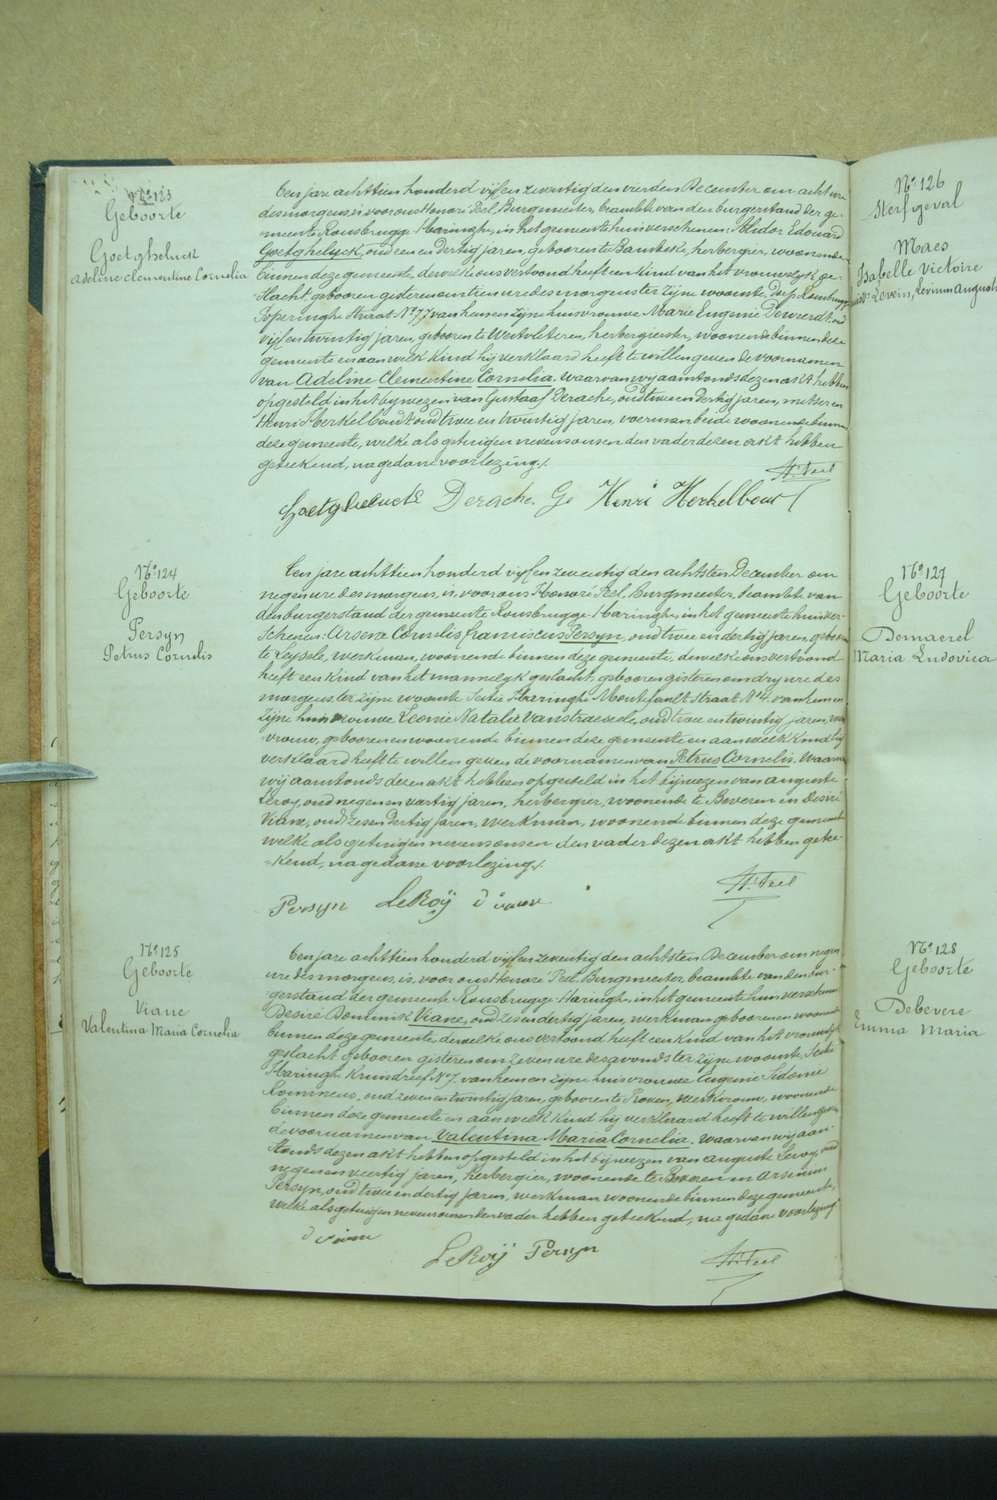 N° 123
Geboorte
Goetgheluck
Adeline Clementine Cornelia
Een jare achttien honderd vijf en zeventig den vierden December om acht ure
des morgens, is voor ons Honoré Peel, Burgmeester, beambte van den burgerstand der ge-
meente Rousbrugge-Haringhe, in het gemeentehuis verschenen: Aledor Edouard
Goetgheluck, oud een en dertig jaren, geboren te Bambeke, herbergier, woonende
binnen deze gemeente, dewelke ons vertoond heeft een kind van het vrouwelyk ge-
slacht, geboren gisteren om tien ure des morgens ter zijne woonste, Dorp Rousbrugge
Poperinghe Straat N° 77 van hem en zijne huisvrouwe Marie Eugenie Dewerdt, oud
vijf en twintig jaren, geboren te Westvleteren, herbergierster, woonende binnen deze
gemeente en aan welk kind hij verklaard heeft te willen geven de voornamen
van Adeline Clementine Cornelia. Waarvan wij aanstonds dezen akt hebben
opgesteld in het bywezen van Gustaaf Derache, oud twee en dertig jaren, metser en
Henri Herkelbout, oud twee en twintig jaren, voerman beide woonende binnen
deze gemeente, welke als getuigen nevens ons en den vader dezen akt hebben
geteekend, na gedane voorlezing.
H. Peel
Goetgheluck Derache. G. Henri Herkelbout
N° 124
Geboorte
Persyn
Petrus Cornelis
Een jare achttien honderd vijf en zeventig den achtsten December om
negen ure des morgens, is voor ons Honoré Peel, Burgmeester, beambte van
den burgerstand der gemeente Rousbrugge-Haringhe, in het gemeentehuis ver-
schenen: Arsene Cornelis Franciscus Persyn, oud twee en dertig jaren, geboren
te Leysele, werkman, woonende binnen deze gemeente, dewelke ons vertoond
heeft een kind van het mannelyk geslacht, geboren gisteren om dry ure des
morgens ter zijne woonste Sectie Haringhe Straat N° 4. van hem en
zijne huisvrouwe Leonie Natalie Vanstraeseele, oud twee en twintig jaren,
vrouw, geboren en woonende binnen deze gemeente en aan welk kind hij
verklaard heeft te willen geven de voornamen van Petrus Cornelis. Waarvan
wij aanstonds dezen akt hebben opgesteld in het bijwezen van Auguste
Leroy, oud negen en veertig jaren, herbergier, woonende te Beveren en Desiré
Viane, oud zes en dertig jaren, werkman, woonende binnen deze gemeente
welke als getuigen nevens ons en den vader dezen akt hebben getee-
kend, na gedane voorlezing.
H. Peel
Persyn LeRoÿ d viane
N° 125
Geboorte
Viane
Valentina Maria Cornelia
Een jare achttien honderd vijf en zeventig den achtsten December om negen
ure des morgens, is voor ons Honoré Peel, Burgmeester, beambte van den bur-
gerstand der gemeente Rousbrugge-Haringhe, in het gemeentehuis verschenen
Desiré Dominik Viane, oud zes en dertig jaren, werkman geboren en woonende
binnen deze gemeente, dewelke ons vertoond heeft een kind van het vrouwelyk
geslacht geboren gisteren om zeven ure des avonds ter zijne woonste Sectie
Haringhe N° 7. van hem en zijne huisvrouwe Eugenie Sidonie
oud zeven en twintig jaren, geboren te Proven, werkvrouw, woonende
binnen deze gemeente en aan welk kind hij verklaard heeft te willen geven
de voornamen van Valentina Maria Cornelia. Waarvan wij aan-
stonds dezen akt hebben opgesteld in het bijwezen van Auguste Leroy, oud
negen en veertig jaren, herbergier, woonende te Beveren en Arsenius
Persyn, oud twee en dertig jaren, werkman woonende binnen deze gemeente,
welke als getuigen nevens ons en den vader hebben geteekend, na gedane voorlezing
d viane
LeRoÿ Persyn
H. Peel
N° 126
Sterfgeval
Maes
Isabelle Victoire
Lovinus August
N° 127
Geboorte
Demaerel
Maria Ludovica
N° 128
Geboorte
Debevere
Emma Maria